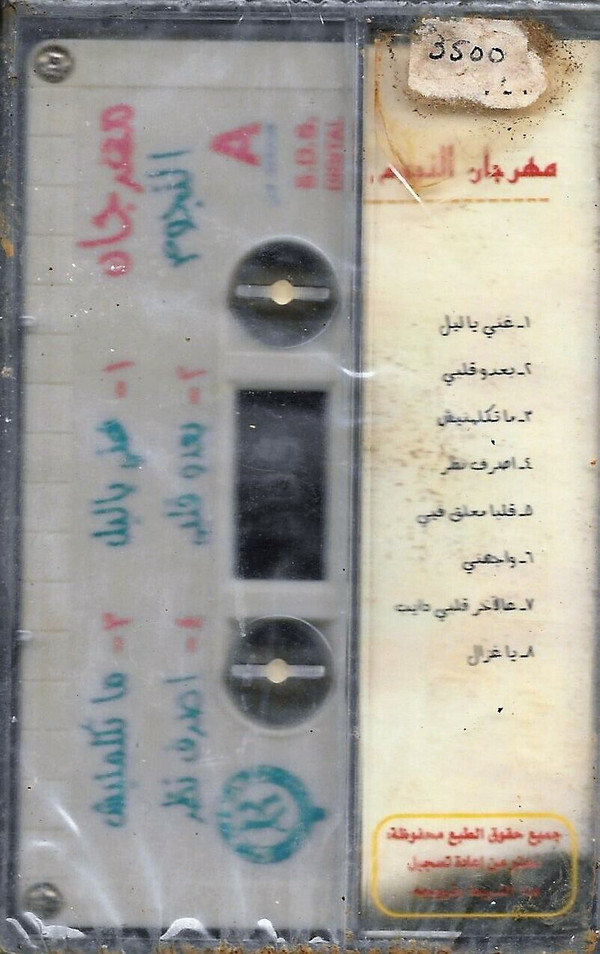 3500
مهرجان النجوم
١ـ غني يا ليل
٢ـ بعدو قلبي
٣ـ ما تكلمنيش
٤ـ اصرف نظر
٥ـ قلبا معلق فيي
٦ـ واجهني
٧ـ عالآخر قلبي دايب
٨ـ يا غزال
جميع حقوق الطبع محفوظة:
من إعادة تسجيل
مهرجان
النجوم
A
DIGITAL
١ -
غني يا ليل
٢ -
بعدو قلبي
٣ -
ما تكلمنيش
٤ -
اصرف نظر